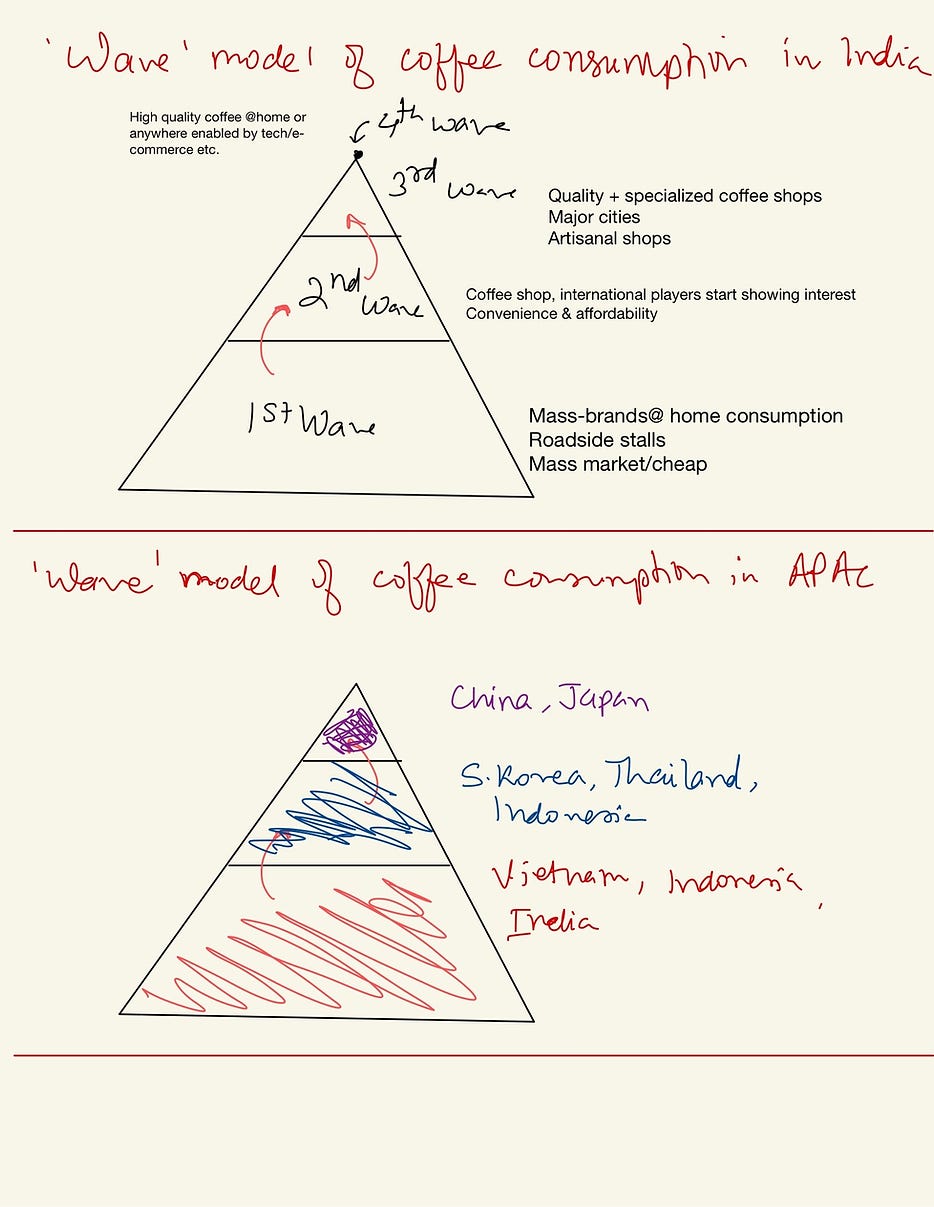 'Wave' model of coffee consumption in India
High quality coffee @home or
anywhere enabled by tech/e-
commerce etc.
4th wave
3rd wave
Quality + specialized coffee shops
Major cities
Artisanal shops
2nd wave
Coffee shop, international players start showing interest
Convenience & affordability
1st Wave
Mass-brands@ home consumption
Roadside stalls
Mass market/cheap
'Wave' model of coffee consumption in APAC
China, Japan
S. Korea, Thailand,
Indonesia
Vietnam, Indonesia,
India